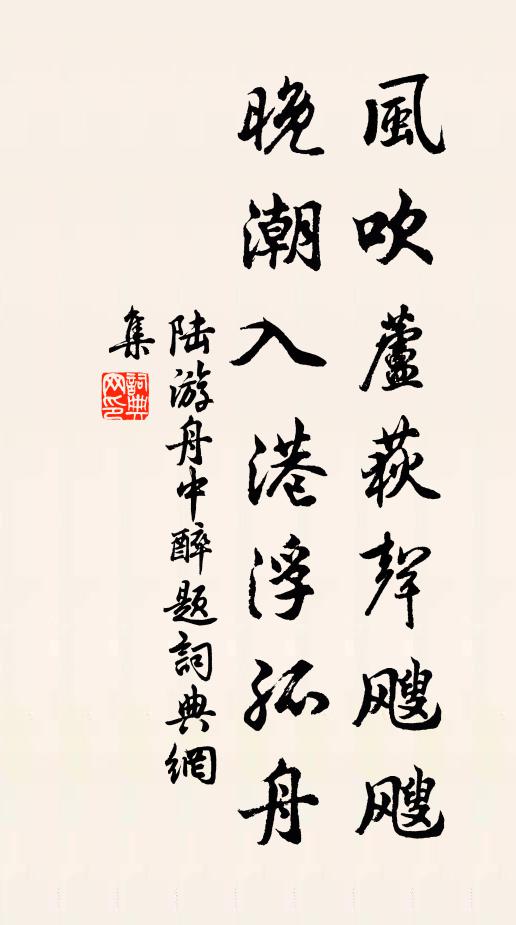 風吹蘆荻聲颼颼
晚潮入港浮孤舟
陆游舟中醉题詞典網
集
詞典网印